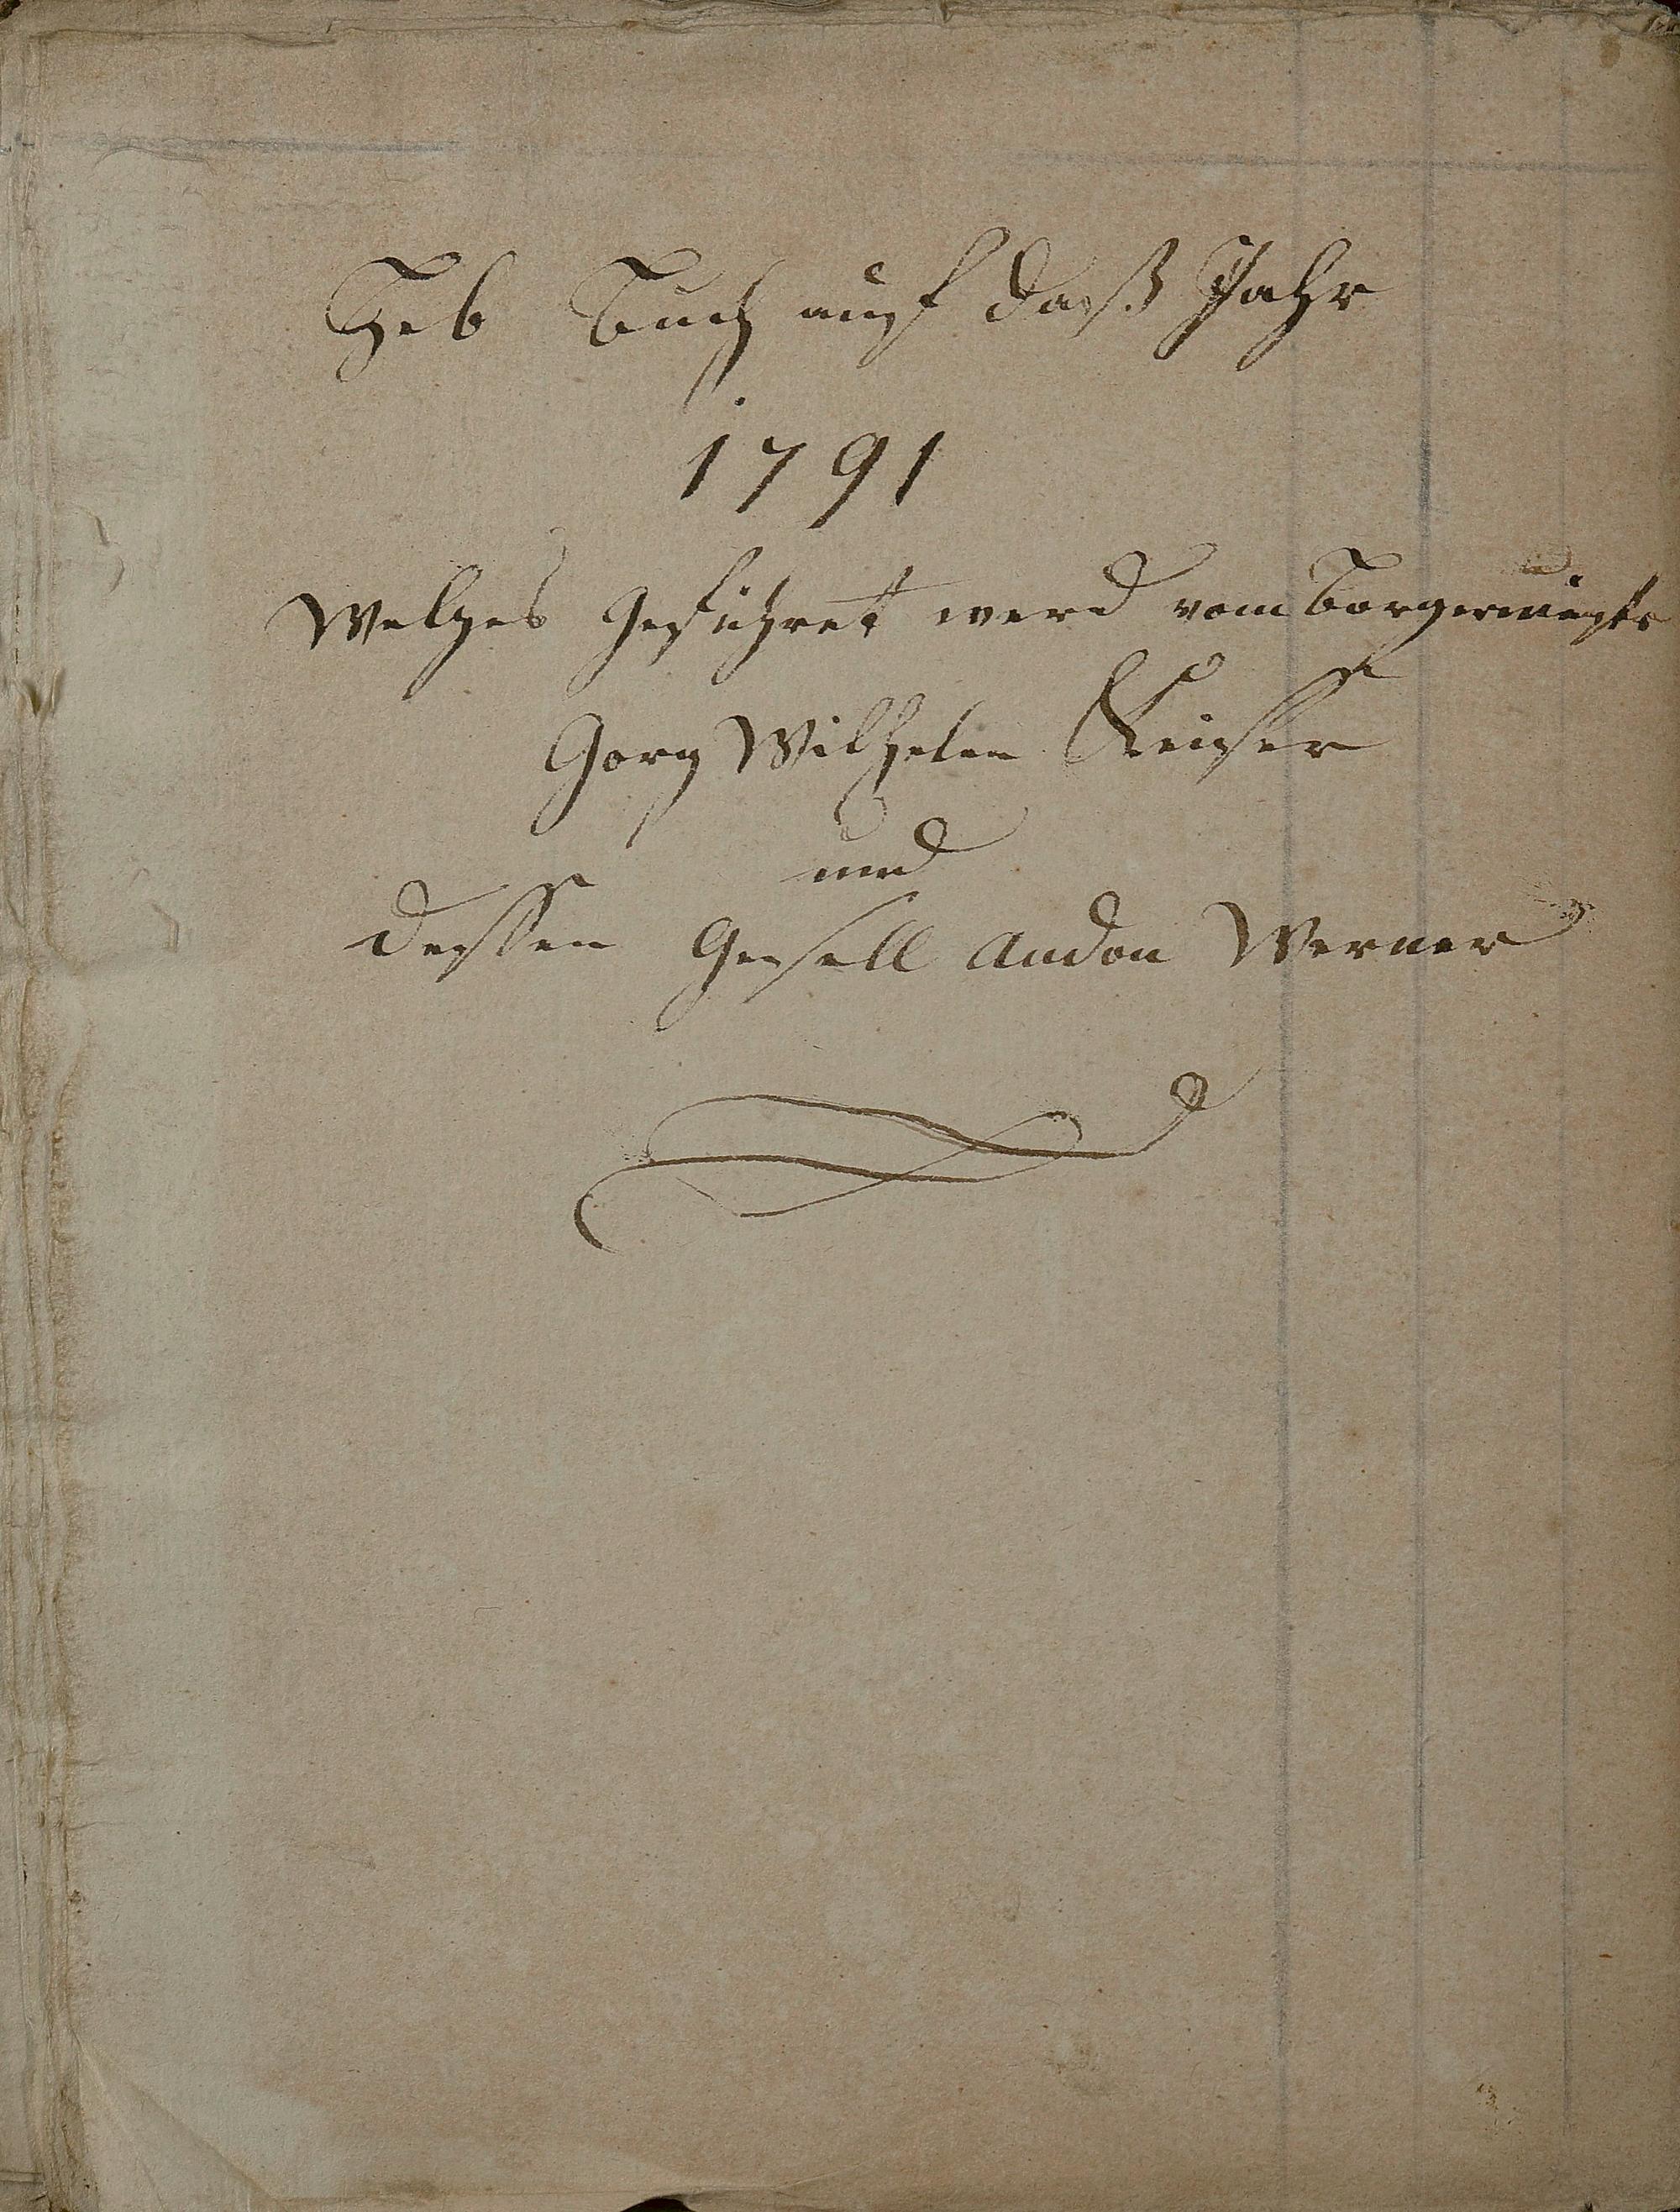 Heb Buch auf daß Jahr
1791
Welches Geführet werd vom Borgermeister
Gorg Wilhelm
und
dessen Gesell Andon Werner